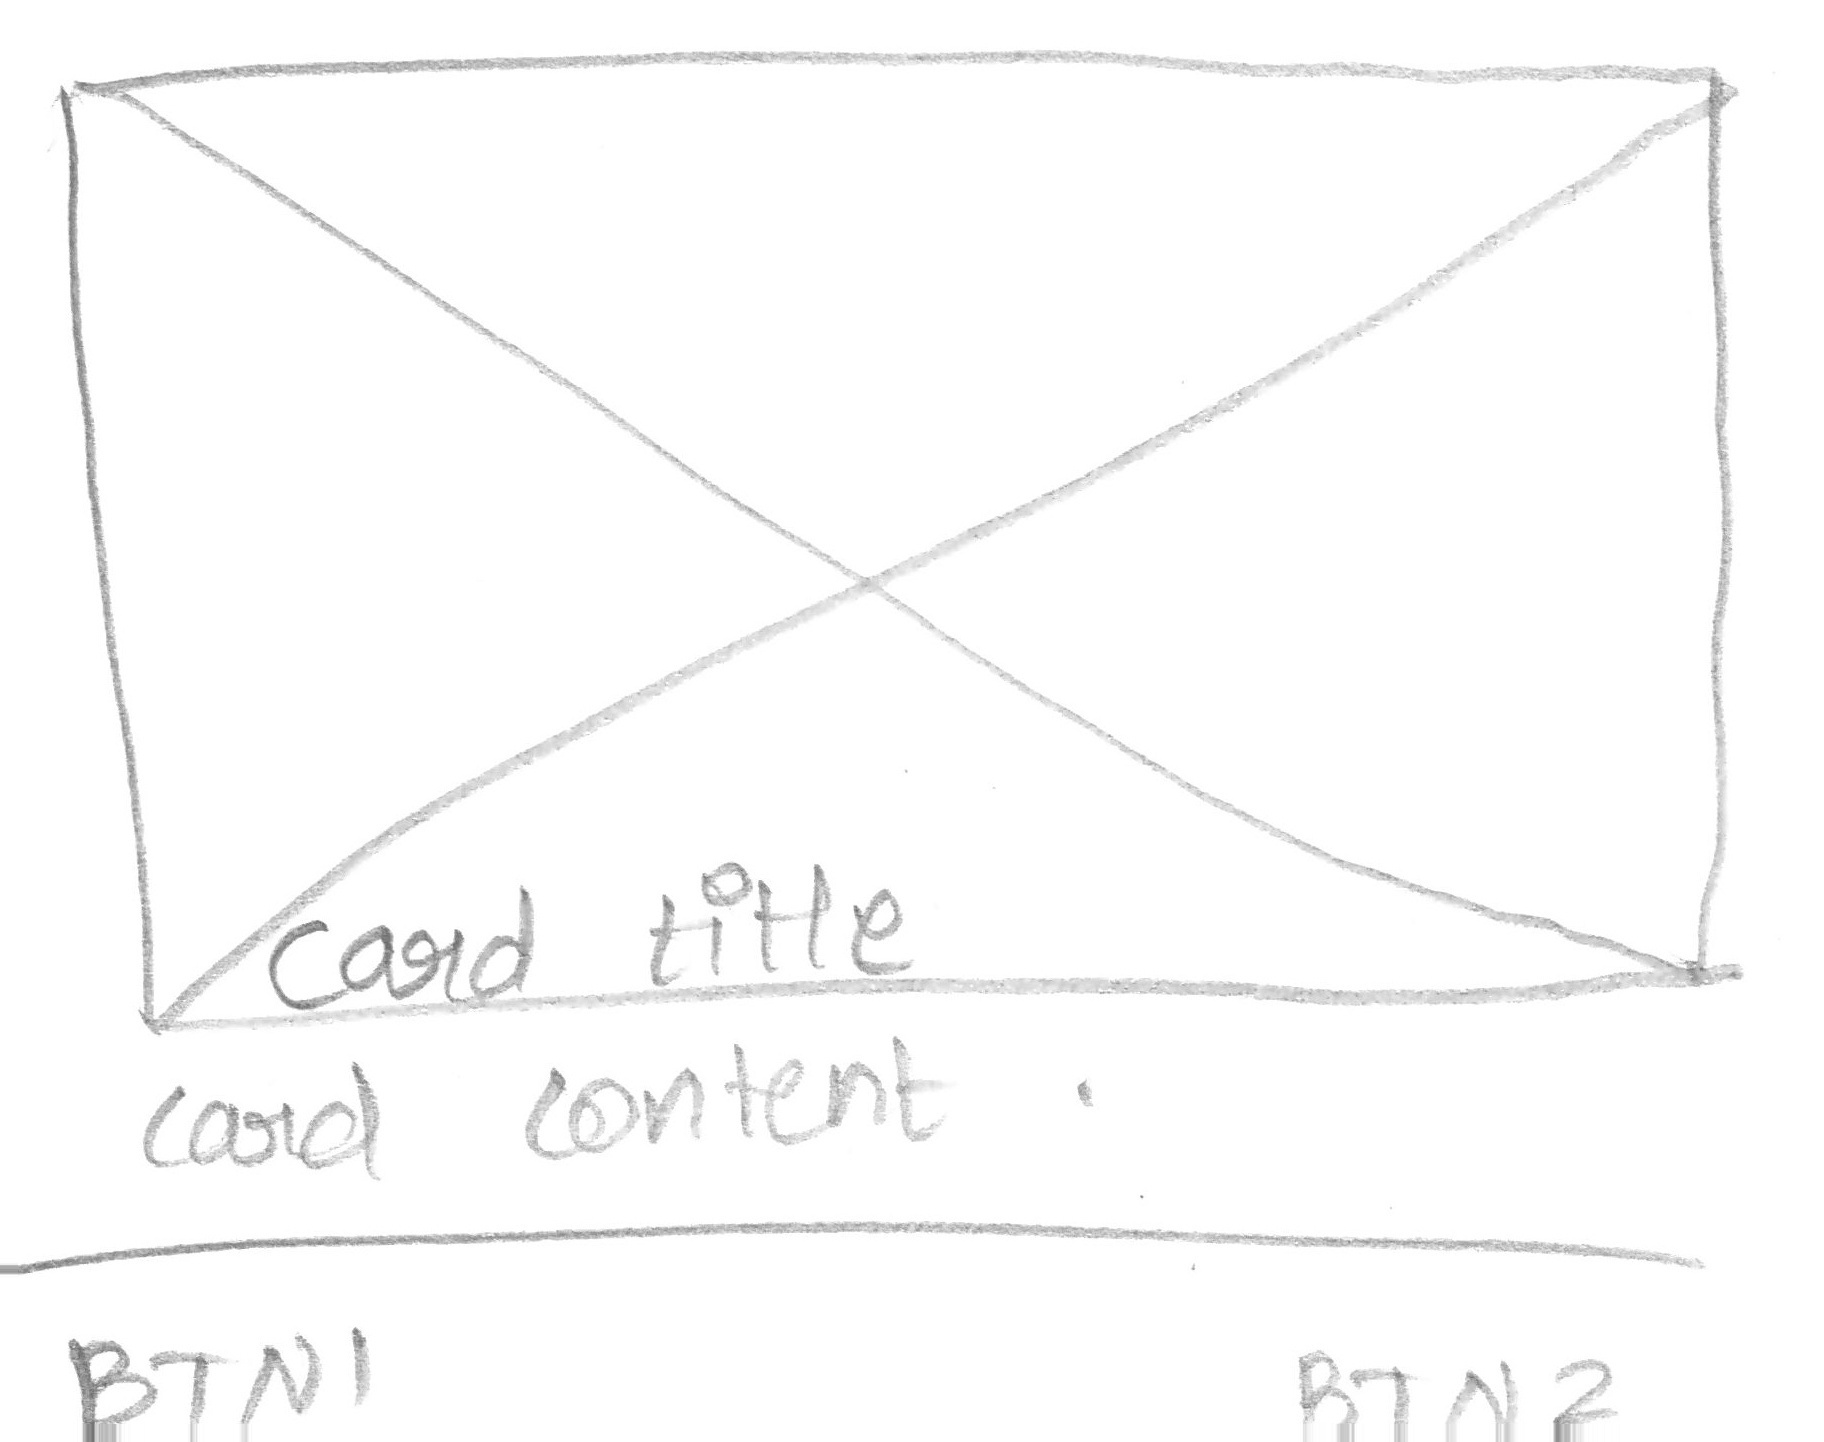 Card title
card content .
BTN1
BTN2